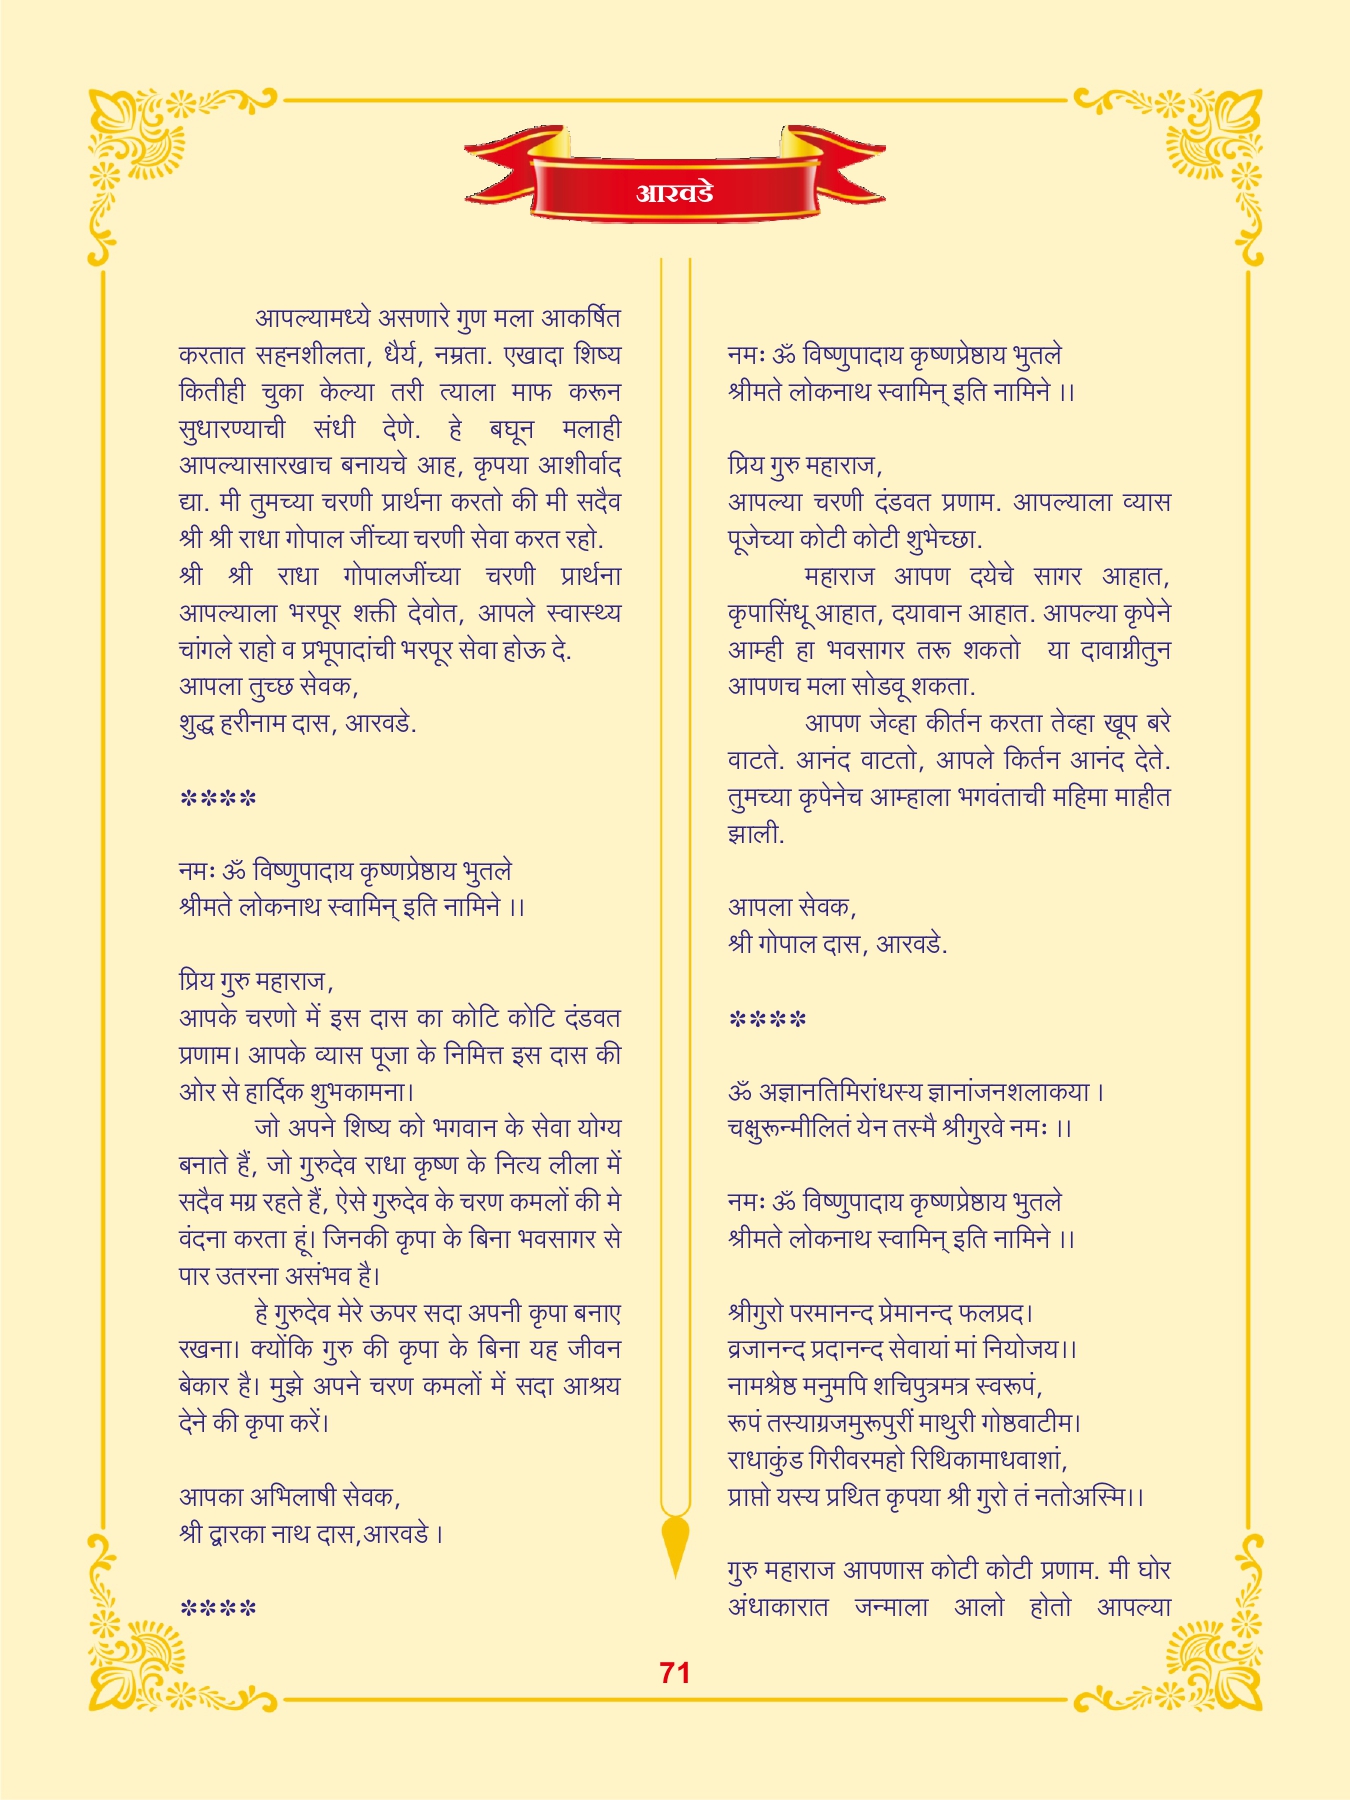 आरवडे
आपल्यामध्ये असणारे गुण मला आकर्षित
करतात सहनशीलता, धैर्य, नम्रता. एखादा शिष्य
कितीही चुका केल्या तरी त्याला माफ करून
सुधारण्याची संधी देणे. हे बघून मलाही
आपल्यासारखाच बनायचे आह, कृपया आशीर्वाद
द्या. मी तुमच्या चरणी प्रार्थना करतो की मी सदैव
श्री श्री राधा गोपाल जींच्या चरणी सेवा करत रहो.
श्री श्री राधा गोपालजींच्या चरणी प्रार्थना
आपल्याला भरपूर शक्ती देवोत, आपले स्वास्थ्य
चांगले राहो व प्रभूपादांची भरपूर सेवा होऊ दे.
आपला तुच्छ सेवक,
शुद्ध हरीनाम दास, आरवडे.
****
नमः ॐ विष्णुपादाय कृष्णप्रेष्ठाय भुतले
श्रीमते लोकनाथ स्वामिन् इति नामिने ।।
प्रिय गुरु महाराज,
आपके चरणो में इस दास का कोटि कोटि दंडवत
प्रणाम। आपके व्यास पूजा के निमित्त इस दास की
ओर से हार्दिक शुभकामना।
जो अपने शिष्य को भगवान के सेवा योग्य
बनाते हैं, जो गुरुदेव राधा कृष्ण के नित्य लीला में
सदैव मग्र रहते हैं, ऐसे गुरुदेव के चरण कमलों की मे
वंदना करता हूं। जिनकी कृपा के बिना भवसागर से
पार उतरना असंभव है।
हे गुरुदेव मेरे ऊपर सदा अपनी कृपा बनाए
रखना। क्योंकि गुरु की कृपा के बिना यह जीवन
बेकार है। मुझे अपने चरण कमलों में सदा आश्रय
देने की कृपा करें।
आपका अभिलाषी सेवक,
श्री द्वारका नाथ दास,आरवडे ।
****
नमः ॐ विष्णुपादाय कृष्णप्रेष्ठाय भुतले
श्रीमते लोकनाथ स्वामिन् इति नामिने ।।
प्रिय गुरु महाराज,
आपल्या चरणी दंडवत प्रणाम. आपल्याला व्यास
पूजेच्या कोटी कोटी शुभेच्छा.
महाराज आपण दयेचे सागर आहात,
कृपासिंधू आहात, दयावान आहात. आपल्या कृपेने
आम्ही हा भवसागर तरू शकतो या दावाग्नीतुन
आपणच मला सोडवू शकता.
आपण जेव्हा कीर्तन करता तेव्हा खूप बरे
वाटते. आनंद वाटतो, आपले किर्तन आनंद देते.
तुमच्या कृपेनेच आम्हाला भगवंताची महिमा माहीत
झाली.
आपला सेवक,
श्री गोपाल दास, आरवडे.
****
ॐ अज्ञानतिमिरांधस्य ज्ञानांजनशलाकया ।
चक्षुरून्मीलितं येन तस्मै श्रीगुरवे नमः ।।
नमः ॐ विष्णुपादाय कृष्णप्रेष्ठाय भुतले
श्रीमते लोकनाथ स्वामिन् इति नामिने ।।
श्रीगुरो परमानन्द प्रेमानन्द फलप्रद।
व्रजानन्द प्रदानन्द सेवायां मां नियोजय।।
नामश्रेष्ठ मनुमपि शचिपुत्रमत्र स्वरूपं,
रूपं तस्याग्रजमुरूपुरीं माथुरी गोष्ठवाटीम।
राधाकुंड गिरीवरमहो रिथिकामाधवाशां,
प्राप्तो यस्य प्रथित कृपया श्री गुरो तं नतोअस्मि।।
गुरु महाराज आपणास कोटी कोटी प्रणाम. मी घोर
अंधाकारात जन्माला आलो होतो आपल्या
71